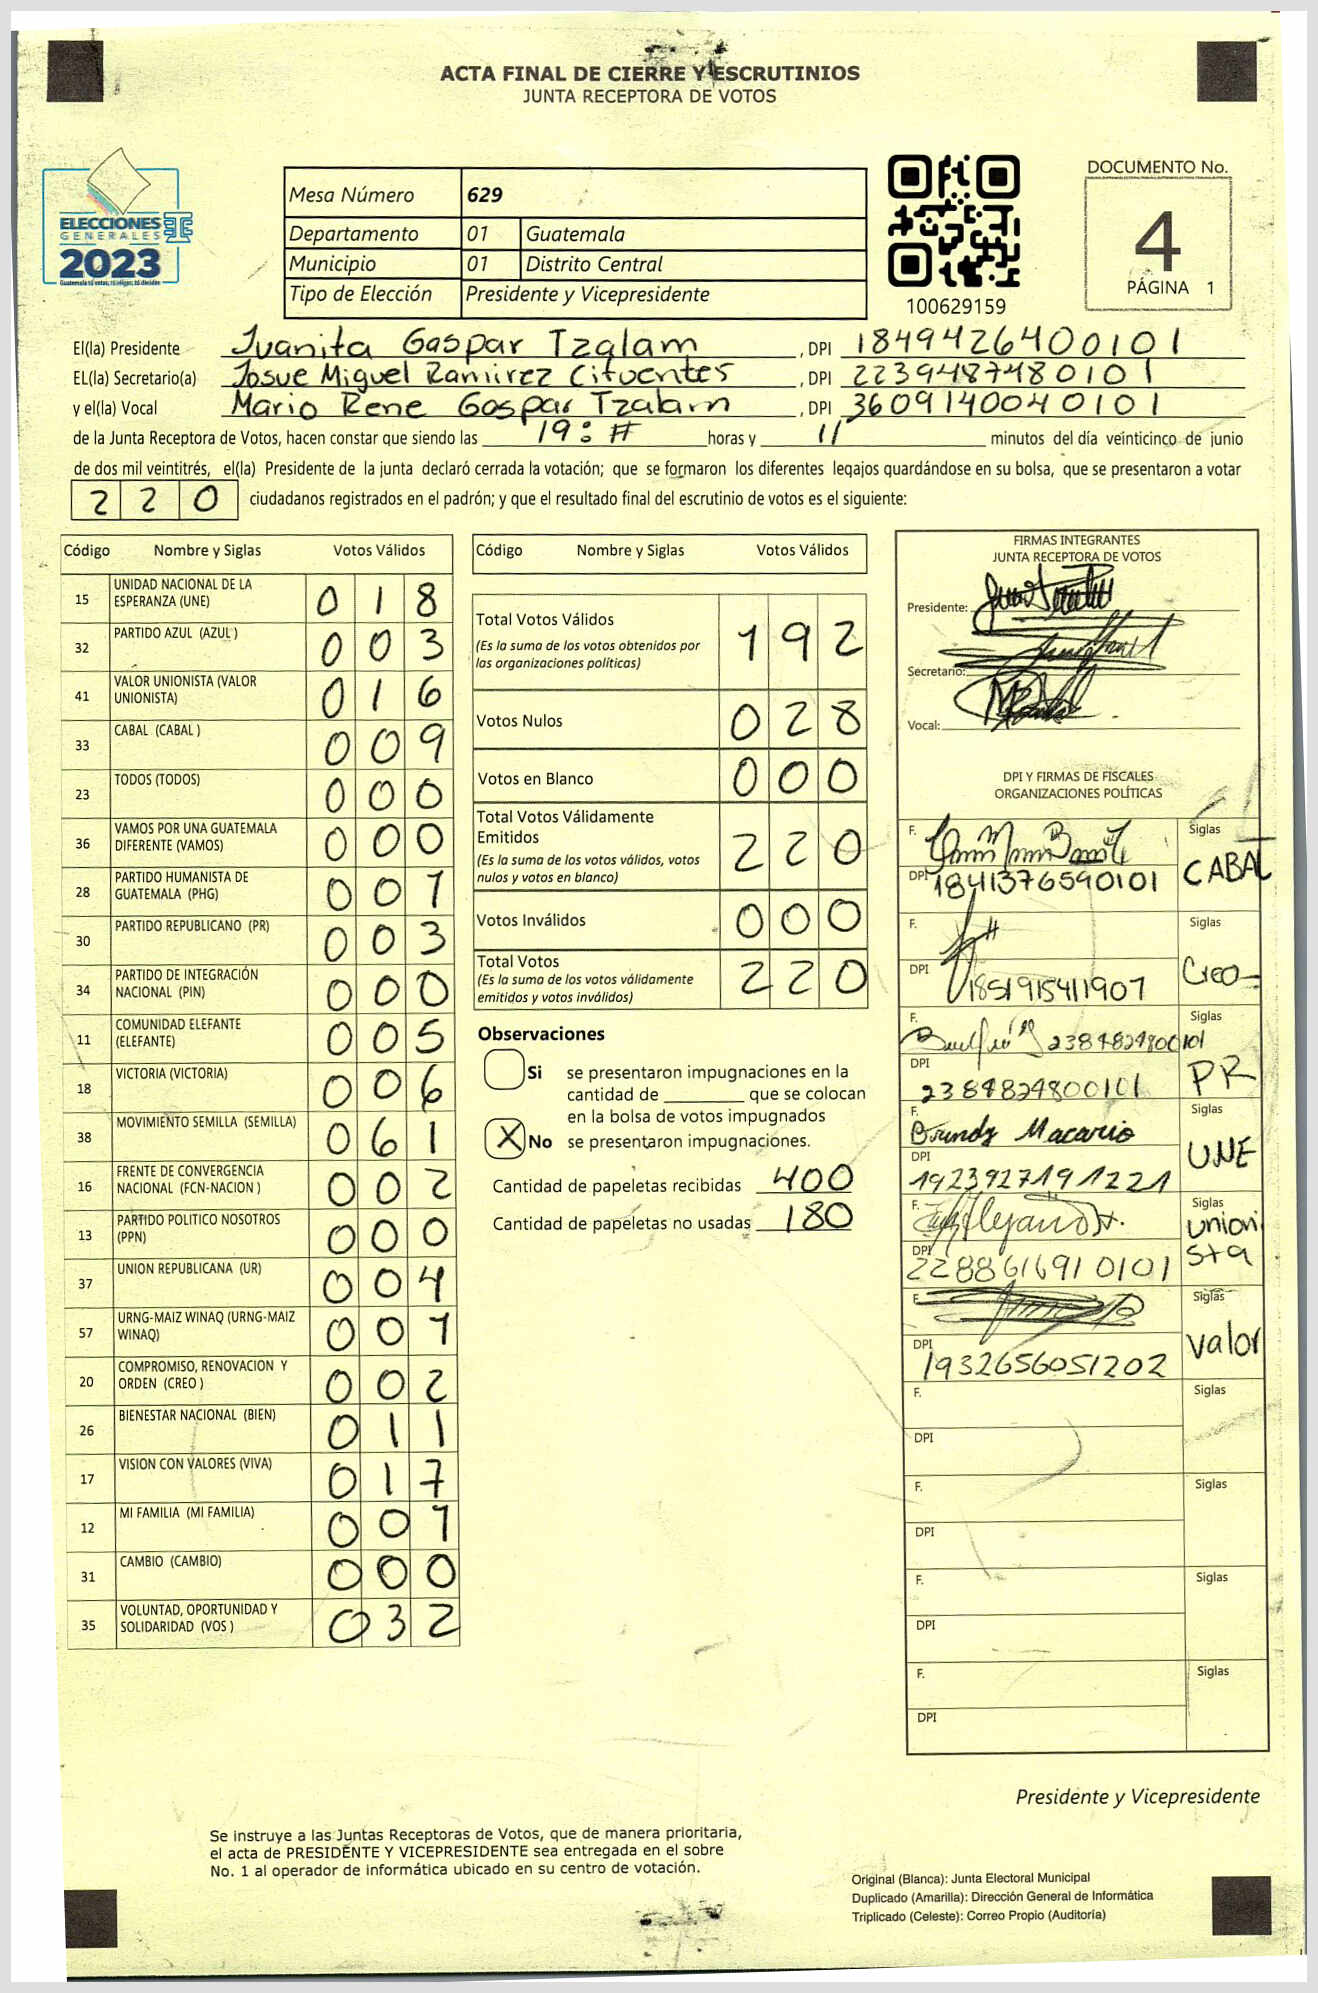 ACTA FINAL DE CIERRE Y ESCRUTINIOS
JUNTA RECEPTORA DE VOTOS
ELECCIONES
GENERALES
2023
Mesa Número 629
Departamento 01 Guatemala
Municipio 01 Distrito Central
Tipo de Elección Presidente y Vicepresidente
100629159
DOCUMENTO No.
4
PÁGINA 1
El(la) Presidente Juanita Gaspar Tzalam , DPI 1849426400101
EL(la) Secretario(a) Josue Miguel Ramirez Cifuentes , DPI 2239487480101
y el(la) Vocal Mario Rene Gaspar Tzalam , DPI 3609140040101
de la Junta Receptora de Votos, hacen constar que siendo las 19: horas y 11 minutos del día veinticinco de junio
de dos mil veintitrés, el(la) Presidente de la junta declaró cerrada la votación; que se formaron los diferentes legajos guardándose en su bolsa, que se presentaron a votar
220 ciudadanos registrados en el padrón; y que el resultado final del escrutinio de votos es el siguiente:
Código Nombre y Siglas Votos Válidos
15 UNIDAD NACIONAL DE LA ESPERANZA (UNE) 018
32 PARTIDO AZUL (AZUL ) 003
41 VALOR UNIONISTA (VALOR UNIONISTA) 016
33 CABAL (CABAL ) 009
23 TODOS (TODOS) 000
36 VAMOS POR UNA GUATEMALA DIFERENTE (VAMOS) 000
28 PARTIDO HUMANISTA DE GUATEMALA (PHG) 001
30 PARTIDO REPUBLICANO (PR) 003
34 PARTIDO DE INTEGRACIÓN NACIONAL (PIN) 000
11 COMUNIDAD ELEFANTE (ELEFANTE) 005
18 VICTORIA (VICTORIA) 006
38 MOVIMIENTO SEMILLA (SEMILLA) 061
16 FRENTE DE CONVERGENCIA NACIONAL (FCN-NACION ) 002
13 PARTIDO POLITICO NOSOTROS (PPN) 000
37 UNION REPUBLICANA (UR) 004
57 URNG-MAIZ WINAQ (URNG-MAIZ WINAQ) 001
20 COMPROMISO, RENOVACION Y ORDEN (CREO ) 002
26 BIENESTAR NACIONAL (BIEN) 011
17 VISION CON VALORES (VIVA) 017
12 MI FAMILIA (MI FAMILIA) 001
31 CAMBIO (CAMBIO) 000
35 VOLUNTAD, OPORTUNIDAD Y SOLIDARIDAD (VOS ) 032
Código Nombre y Siglas Votos Válidos
Total Votos Válidos 192
(Es la suma de los votos obtenidos por
las organizaciones políticas)
Votos Nulos 028
Votos en Blanco 000
Total Votos Válidamente
Emitidos 220
(Es la suma de los votos válidos, votos
nulos y votos en blanco)
Votos Inválidos 000
Total Votos 220
(Es la suma de los votos válidamente
emitidos y votos inválidos)
Observaciones
Si se presentaron impugnaciones en la
cantidad de ________ que se colocan
en la bolsa de votos impugnados
X No se presentaron impugnaciones.
Cantidad de papeletas recibidas 400
Cantidad de papeletas no usadas 180
FIRMAS INTEGRANTES
JUNTA RECEPTORA DE VOTOS
Presidente:
Secretario:
Vocal:
DPI Y FIRMAS DE FISCALES
ORGANIZACIONES POLÍTICAS
F. Siglas
DPI 1841376590101 CABAL
F. Siglas
DPI 1851915411907 Creo
F. 2384824800101 Siglas
DPI 2384824800101 PR
F. Brendy Macario Siglas
DPI 1923927191221 UNE
F. Siglas
DPI 2288616910101 unionista
F. Siglas
DPI 1932656051202 Valor
F. Siglas
DPI
F. Siglas
DPI
F. Siglas
DPI
F. Siglas
DPI
Presidente y Vicepresidente
Se instruye a las Juntas Receptoras de Votos, que de manera prioritaria,
el acta de PRESIDENTE Y VICEPRESIDENTE sea entregada en el sobre
No. 1 al operador de informática ubicado en su centro de votación.
Original (Blanca): Junta Electoral Municipal
Duplicado (Amarilla): Dirección General de Informática
Triplicado (Celeste): Correo Propio (Auditoría)